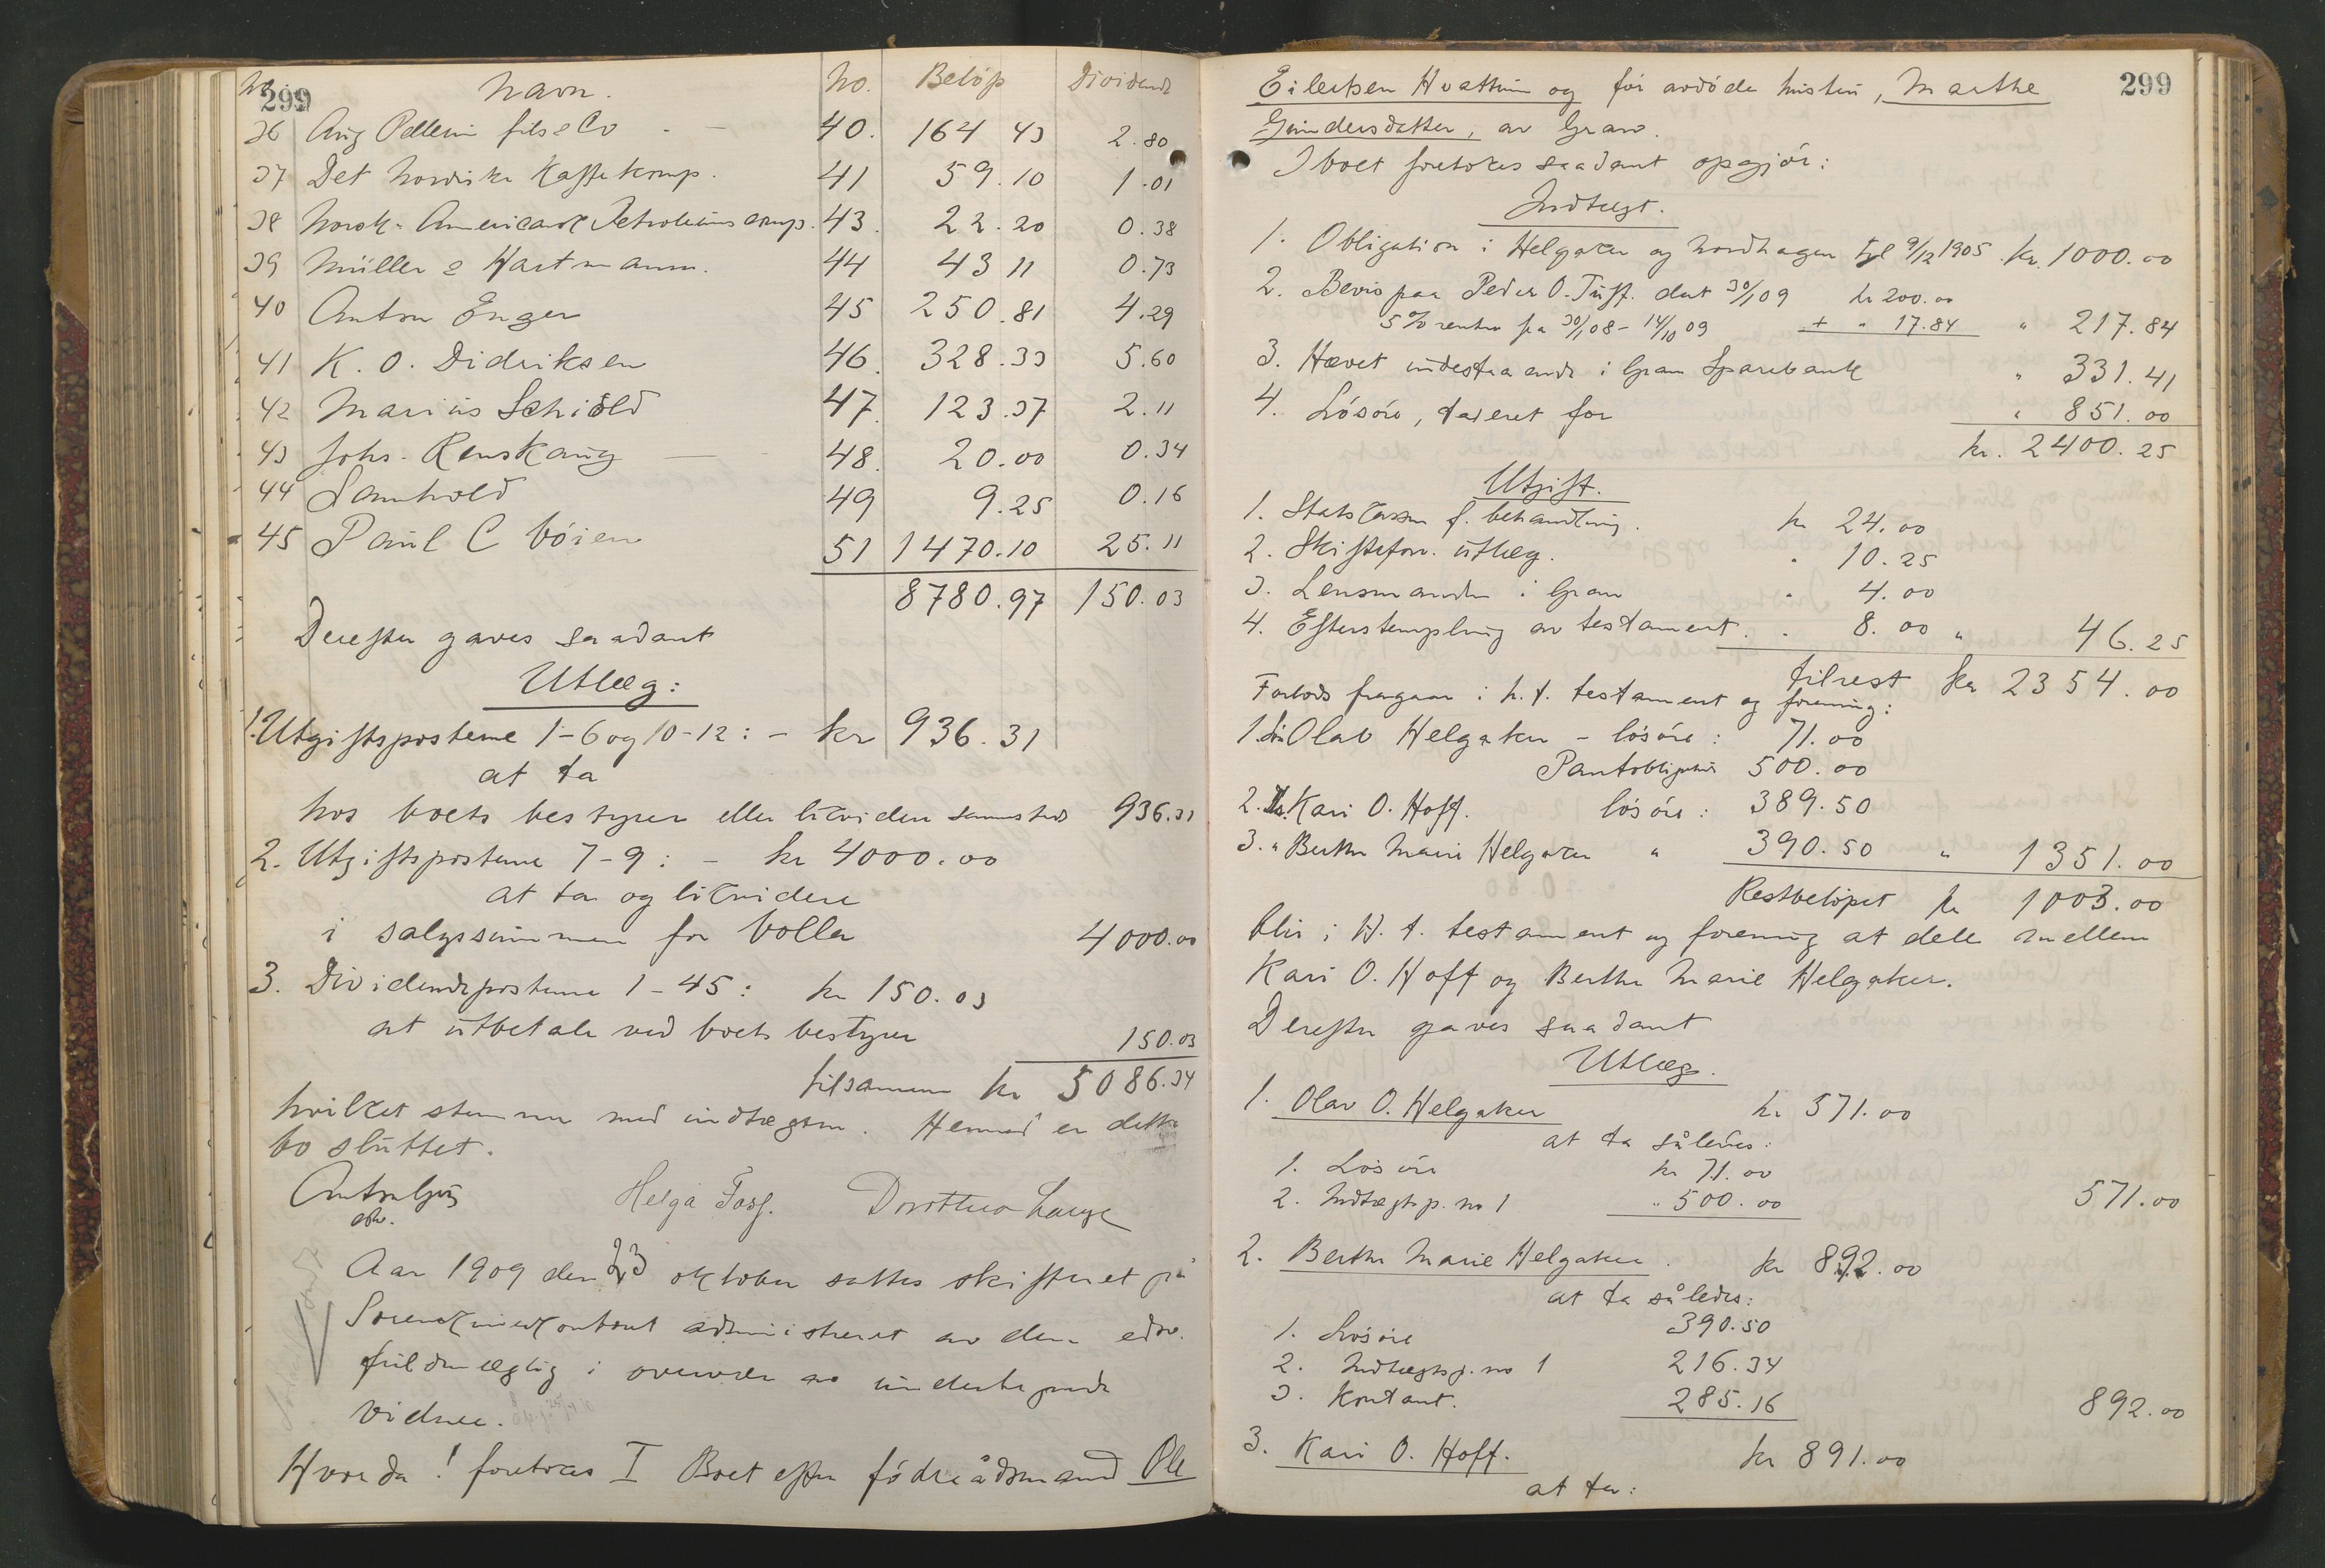 299
No Navn. No. Beløp Dividende
36 Aug Pellerin fils & Co - 40. 164 43 2.80
37 Det Nordiske Kaffekomp. 41 59.10 1.01
38 Norsk-Americansk Petroleumscomp. 43. 22.20 0.38
39 Müller & Hartmann. 44 43 11 0.73
40 Anton Enger 45 250.81 4.29
41 K. O. Didriksen 46. 328.33 5.60
42 Marius Schiöld 47. 123.37 2.11
43 Johs. Renskaug 48. 20.00 0.34
44 Samhold 49 9.25 0.16
45 Paul C Bøien 51 1470.10 25.11
8780.97 150.03
Derefter gaves saadant
Utlæg:
1. Utgiftsposterne 1-6 og 10-12: - kr 936.31
at ta
hos boets bestyrer eller likvidere sammesteds 936.31
2. Utgiftsposterne 7-9: - kr 4000.00
at ta og likvidere
i salgssummen for Volla 4000.00
3. Dividendeposterne 1-45: kr 150.03
at utbetale ved boets bestyrer 150.03
tilsammen kr 5086.34
hvilket stemmer med indtægten. Hermed er dette
bo sluttet.
Helga Dorothea Lange
edsv.
Aar 1909 den 23 oktober sattes skifteret på
Sorenskriverkontoret administreret av den edsv.
fuldmægtig i overvær av undertegnede
vidner.
Hvorda! foretokes I Boet efter føderådsmand Ole
299
Eilertsen Hvattum og før avdøde hustru, Marthe
Gundersdatter, av Gran.
I boet foretokes saadant opgjør:
Indtægt.
1. Obligation i Helgaker og Nordhagen tgl 9/12 1905 kr. 1000.00
2. Bevis paa Peder O. Tuff. dat 30/1 09 kr 200.00
5% renter fra 30/1 08 - 14/10 09 + " 17.84 " 217.84
3. Hævet indestaaende i Gran Sparebank " 331.41
4. Løsøre, taxeret for " 851.00
kr. 2400.25
Utgift.
1. Statskassen f. behandling. kr 24.00
2. Skifteforv. utlæg. " 10.25
3. Lensmanden i Gran " 4.00
4. Efterstempling av testament. " 8.00 " 46.25
tilrest kr 2354.00
Forlods fragaar i h.t. testament og forening:
1. Søn Olav Helgaker - løsøre: 71.00
Pantobligation 500.00
2. Dtr. Kari O. Hoff. løsøre: 389.50
3. " Berthe Marie Helgaker " 390.50 " 1351.00
Restbeløpet kr 1003.00
blir i H. t. testament og forening at dele mellem
Kari O. Hoff og Berthe Marie Helgaker.
Derefter gaves saadant
Utlæg.
1. Olav O. Helgaker kr 571.00
at ta således:
1. Løsøre kr 71.00
2. Indtægtsp. no 1 " 500.00 571.00
2. Berthe Marie Helgaker. kr 892.00
at ta således:
1. Løsøre 390.50
2. Indtægtsp. no 1 216.34
3. Kontant. 285.16 892.00
3. Kari O. Hoff. kr 891.00
at ta: